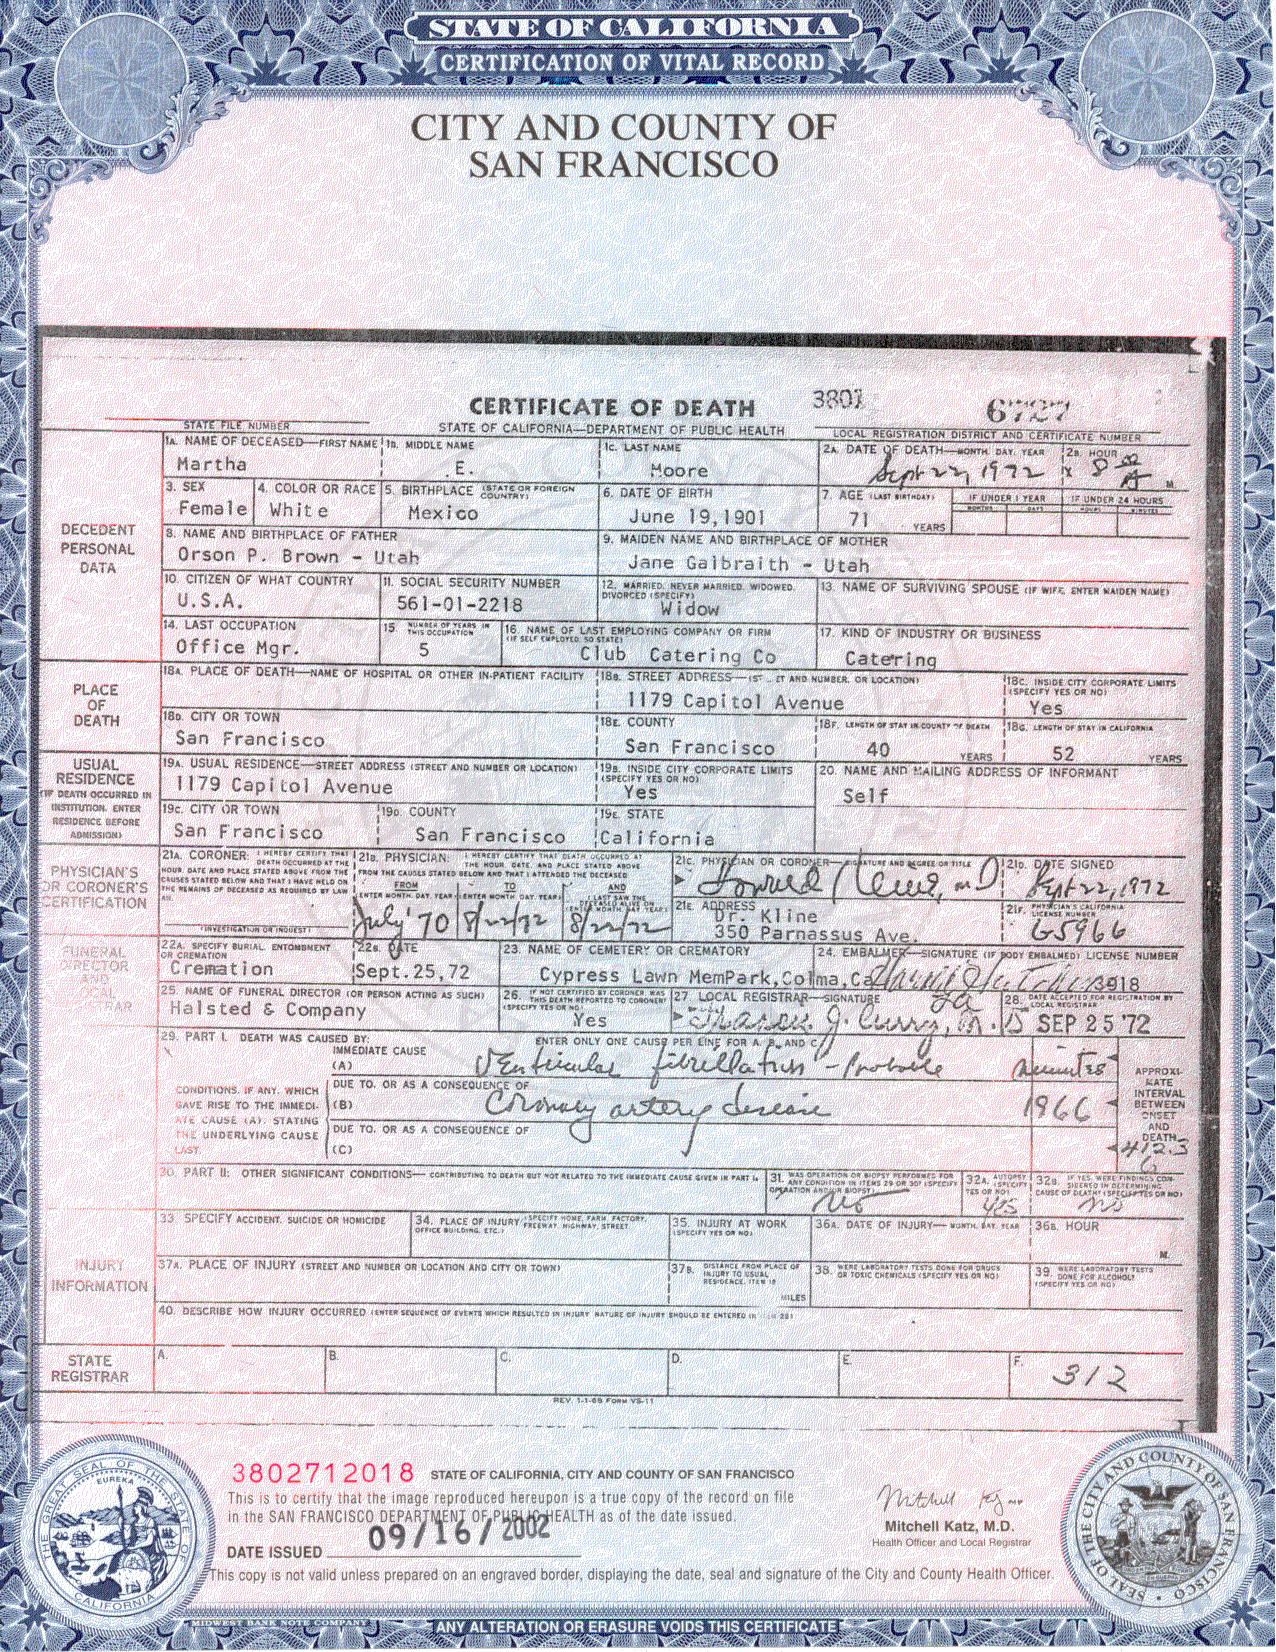 STATE OF CALIFORNIA
CERTIFICATION OF VITAL RECORD
CITY AND COUNTY OF
SAN FRANCISCO
CERTIFICATE OF DEATH
3801
6727
STATE FILE NUMBER
STATE OF CALIFORNIA—DEPARTMENT OF PUBLIC HEALTH
LOCAL REGISTRATION DISTRICT AND CERTIFICATE NUMBER
DECEDENT PERSONAL DATA
1A. NAME OF DECEASED—FIRST NAME 1B. MIDDLE NAME 1C. LAST NAME 2A. DATE OF DEATH—MONTH, DAY, YEAR 2B. HOUR
Martha E. Moore Sept 22, 1972 8 00 A M.
3. SEX 4. COLOR OR RACE 5. BIRTHPLACE (STATE OR FOREIGN COUNTRY) 6. DATE OF BIRTH 7. AGE (LAST BIRTHDAY) IF UNDER 1 YEAR IF UNDER 24 HOURS
MONTHS DAYS HOURS MINUTES
Female White Mexico June 19,1901 71 YEARS
8. NAME AND BIRTHPLACE OF FATHER 9. MAIDEN NAME AND BIRTHPLACE OF MOTHER
Orson P. Brown - Utah Jane Galbraith - Utah
10. CITIZEN OF WHAT COUNTRY 11. SOCIAL SECURITY NUMBER 12. MARRIED, NEVER MARRIED, WIDOWED, DIVORCED (SPECIFY) 13. NAME OF SURVIVING SPOUSE (IF WIFE, ENTER MAIDEN NAME)
U.S.A. 561-01-2218 Widow
14. LAST OCCUPATION 15. NUMBER OF YEARS IN THIS OCCUPATION 16. NAME OF LAST EMPLOYING COMPANY OR FIRM (IF SELF EMPLOYED, SO STATE) 17. KIND OF INDUSTRY OR BUSINESS
Office Mgr. 5 Club Catering Co Catering
PLACE OF DEATH
18A. PLACE OF DEATH—NAME OF HOSPITAL OR OTHER IN-PATIENT FACILITY 18B. STREET ADDRESS—(ST ET AND NUMBER, OR LOCATION) 18C. INSIDE CITY CORPORATE LIMITS (SPECIFY YES OR NO)
1179 Capitol Avenue Yes
18D. CITY OR TOWN 18E. COUNTY 18F. LENGTH OF STAY IN COUNTY OF DEATH 18G. LENGTH OF STAY IN CALIFORNIA
San Francisco San Francisco 40 YEARS 52 YEARS
USUAL RESIDENCE
(IF DEATH OCCURRED IN INSTITUTION, ENTER RESIDENCE BEFORE ADMISSION)
19A. USUAL RESIDENCE—STREET ADDRESS (STREET AND NUMBER OR LOCATION) 19B. INSIDE CITY CORPORATE LIMITS (SPECIFY YES OR NO) 20. NAME AND MAILING ADDRESS OF INFORMANT
1179 Capitol Avenue Yes Self
19C. CITY OR TOWN 19D. COUNTY 19E. STATE
San Francisco San Francisco California
PHYSICIAN'S OR CORONER'S CERTIFICATION
21A. CORONER: I HEREBY CERTIFY THAT DEATH OCCURRED AT THE HOUR, DATE AND PLACE STATED ABOVE FROM THE CAUSES STATED BELOW AND THAT I HAVE HELD ON THE REMAINS OF DECEASED AS REQUIRED BY LAW AN.
(INVESTIGATION OR INQUEST)
21B. PHYSICIAN: I HEREBY CERTIFY THAT DEATH OCCURRED AT THE HOUR, DATE, AND PLACE STATED ABOVE FROM THE CAUSES STATED BELOW AND THAT I ATTENDED THE DECEASED
FROM TO AND
(ENTER MONTH, DAY, YEAR) (ENTER MONTH, DAY, YEAR) I LAST SAW THE DECEASED ALIVE ON (ENTER MONTH, DAY, YEAR)
July '70 8/22/72 8/22/72
21C. PHYSICIAN OR CORONER—SIGNATURE AND DEGREE OR TITLE 21D. DATE SIGNED
MD Sept 22, 1972
21E. ADDRESS 21F. PHYSICIAN'S CALIFORNIA LICENSE NUMBER
Dr. Kline
350 Parnassus Ave. G5966
FUNERAL DIRECTOR AND
22A. SPECIFY BURIAL, ENTOMBMENT OR CREMATION 22B. DATE 23. NAME OF CEMETERY OR CREMATORY 24. EMBALMER—SIGNATURE (IF BODY EMBALMED) LICENSE NUMBER
Cremation Sept.25,72 Cypress Lawn MemPark,Colma,Ca 3918
25. NAME OF FUNERAL DIRECTOR (OR PERSON ACTING AS SUCH) 26. IF NOT CERTIFIED BY CORONER, WAS THIS DEATH REPORTED TO CORONER? (SPECIFY YES OR NO) 27. LOCAL REGISTRAR—SIGNATURE 28. DATE ACCEPTED FOR REGISTRATION BY LOCAL REGISTRAR
Halsted & Company Yes Francis J. Curry, M.D SEP 25 '72
29. PART I. DEATH WAS CAUSED BY: ENTER ONLY ONE CAUSE PER LINE FOR A, B, AND C
IMMEDIATE CAUSE
(A) Ventricular fibrillation - Probable minutes
CONDITIONS, IF ANY, WHICH GAVE RISE TO THE IMMEDIATE CAUSE (A), STATING THE UNDERLYING CAUSE LAST.
DUE TO, OR AS A CONSEQUENCE OF
(B) Coronary artery disease 1966
DUE TO, OR AS A CONSEQUENCE OF
(C)
APPROXIMATE INTERVAL BETWEEN ONSET AND DEATH
412.3
30. PART II: OTHER SIGNIFICANT CONDITIONS— CONTRIBUTING TO DEATH BUT NOT RELATED TO THE IMMEDIATE CAUSE GIVEN IN PART I. 31. WAS OPERATION OR BIOPSY PERFORMED FOR ANY CONDITION IN ITEMS 29 OR 30? (SPECIFY OPERATION AND/OR BIOPSY) 32A. AUTOPSY (SPECIFY YES OR NO) 32B. IF YES, WERE FINDINGS CONSIDERED IN DETERMINING CAUSE OF DEATH? (SPECIFY YES OR NO)
No yes no
INJURY INFORMATION
33. SPECIFY ACCIDENT, SUICIDE OR HOMICIDE 34. PLACE OF INJURY (SPECIFY HOME, FARM, FACTORY, FREEWAY, HIGHWAY, STREET, OFFICE BUILDING, ETC.) 35. INJURY AT WORK (SPECIFY YES OR NO) 36A. DATE OF INJURY—MONTH, DAY, YEAR 36B. HOUR
M.
37A. PLACE OF INJURY (STREET AND NUMBER OR LOCATION AND CITY OR TOWN) 37B. DISTANCE FROM PLACE OF INJURY TO USUAL RESIDENCE, ITEM 19 MILES 38. WERE LABORATORY TESTS DONE FOR DRUGS OR TOXIC CHEMICALS (SPECIFY YES OR NO) 39. WERE LABORATORY TESTS DONE FOR ALCOHOL? (SPECIFY YES OR NO)
40. DESCRIBE HOW INJURY OCCURRED (ENTER SEQUENCE OF EVENTS WHICH RESULTED IN INJURY NATURE OF INJURY SHOULD BE ENTERED IN ITEM 29)
STATE REGISTRAR
A. B. C. D. E. F.
312
REV. 1-1-68 FORM VS-11
3802712018 STATE OF CALIFORNIA, CITY AND COUNTY OF SAN FRANCISCO
This is to certify that the image reproduced hereupon is a true copy of the record on file
in the SAN FRANCISCO DEPARTMENT OF PUBLIC HEALTH as of the date issued.
DATE ISSUED 09/16/2002
Mitchell Katz, M.D.
Health Officer and Local Registrar
This copy is not valid unless prepared on an engraved border, displaying the date, seal and signature of the City and County Health Officer.
THE GREAT SEAL OF THE STATE OF CALIFORNIA
EUREKA
SEAL OF THE CITY AND COUNTY OF SAN FRANCISCO
MIDWEST BANK NOTE COMPANY
ANY ALTERATION OR ERASURE VOIDS THIS CERTIFICATE